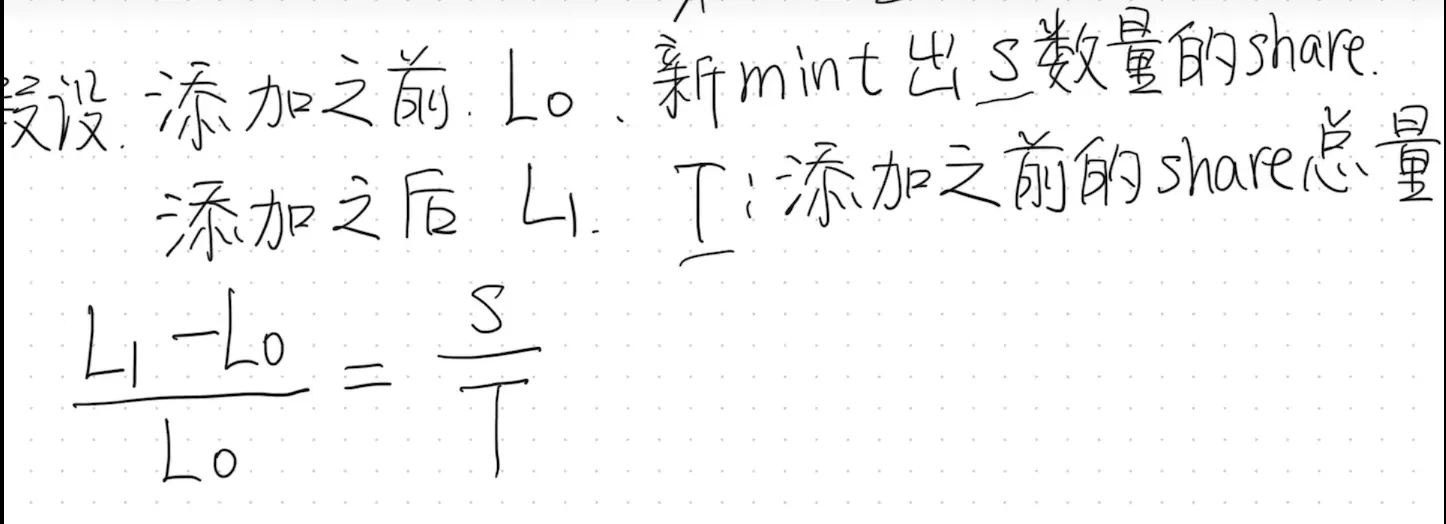 假设. 添加之前. L0 、新mint出S数量的share.
添加之后 L1. T:添加之前的share总量
L1-L0 / L0 = S / T